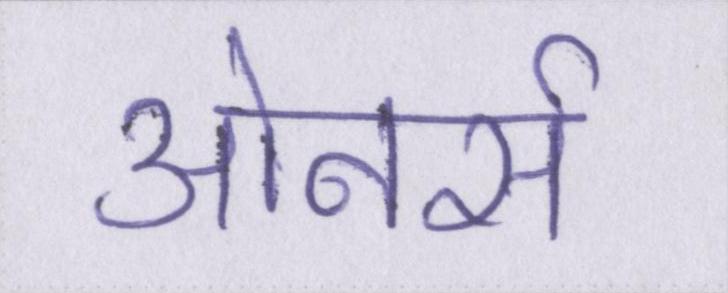 ओनर्स